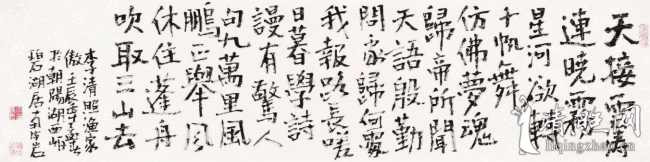 天接雲濤
連曉霧
星河欲轉
千帆舞
仿佛夢魂
歸帝所聞
天語殷勤
問我歸何處
我報路長嗟
日暮學詩
謾有驚人
句九萬里風
鵬正舉風
休住蓬舟
吹取三山去
李清照漁家
傲壬辰年
於朝閣湖西畔
碧湖居士